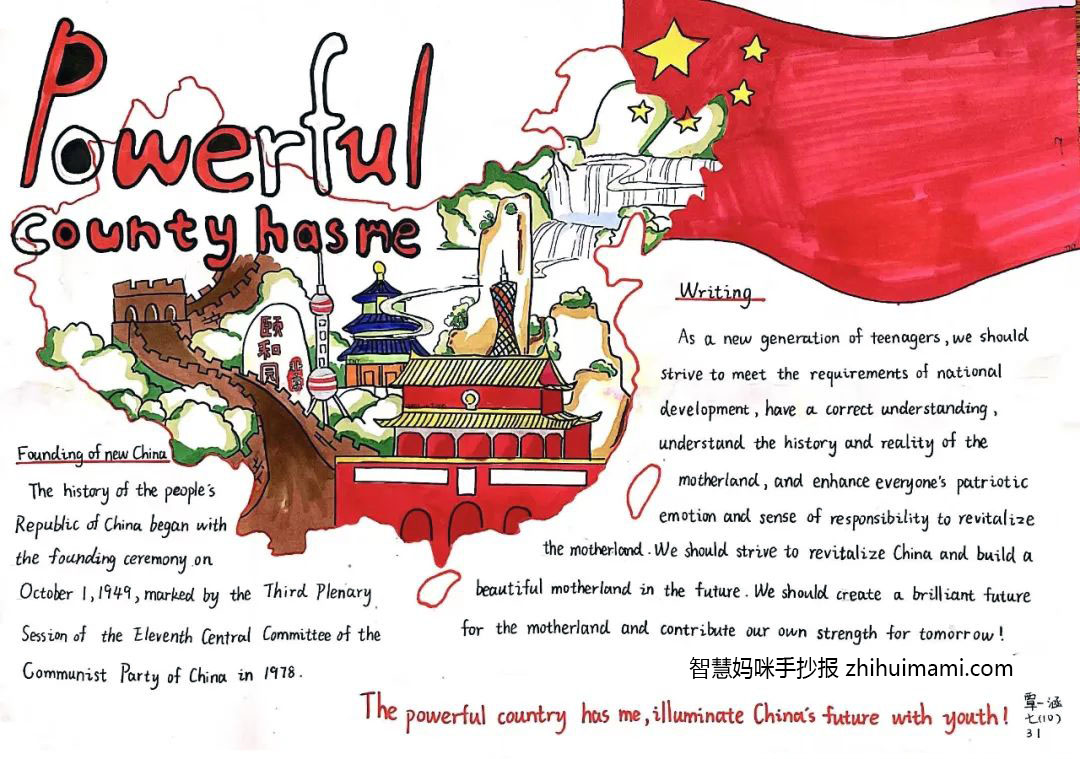 Powerful
county has me
颐
和
园
Founding of new China
The history of the people's
Republic of China began with
the founding ceremony on
October 1, 1949, marked by the Third Plenary
Session of the Eleventh Central Committee of the
Communist Party of China in 1978.
Writing
As a new generation of teenagers, we should
strive to meet the requirements of national
development, have a correct understanding,
understand the history and reality of the
motherland, and enhance everyone's patriotic
emotion and sense of responsibility to revitalize
the motherland. We should strive to revitalize China and build a
beautiful motherland in the future. We should create a brilliant future
for the motherland and contribute our own strength for tomorrow!
智慧妈咪手抄报 zhihuimami.com
The powerful country has me, illuminate China's future with youth!
覃一涵
七(10)
31